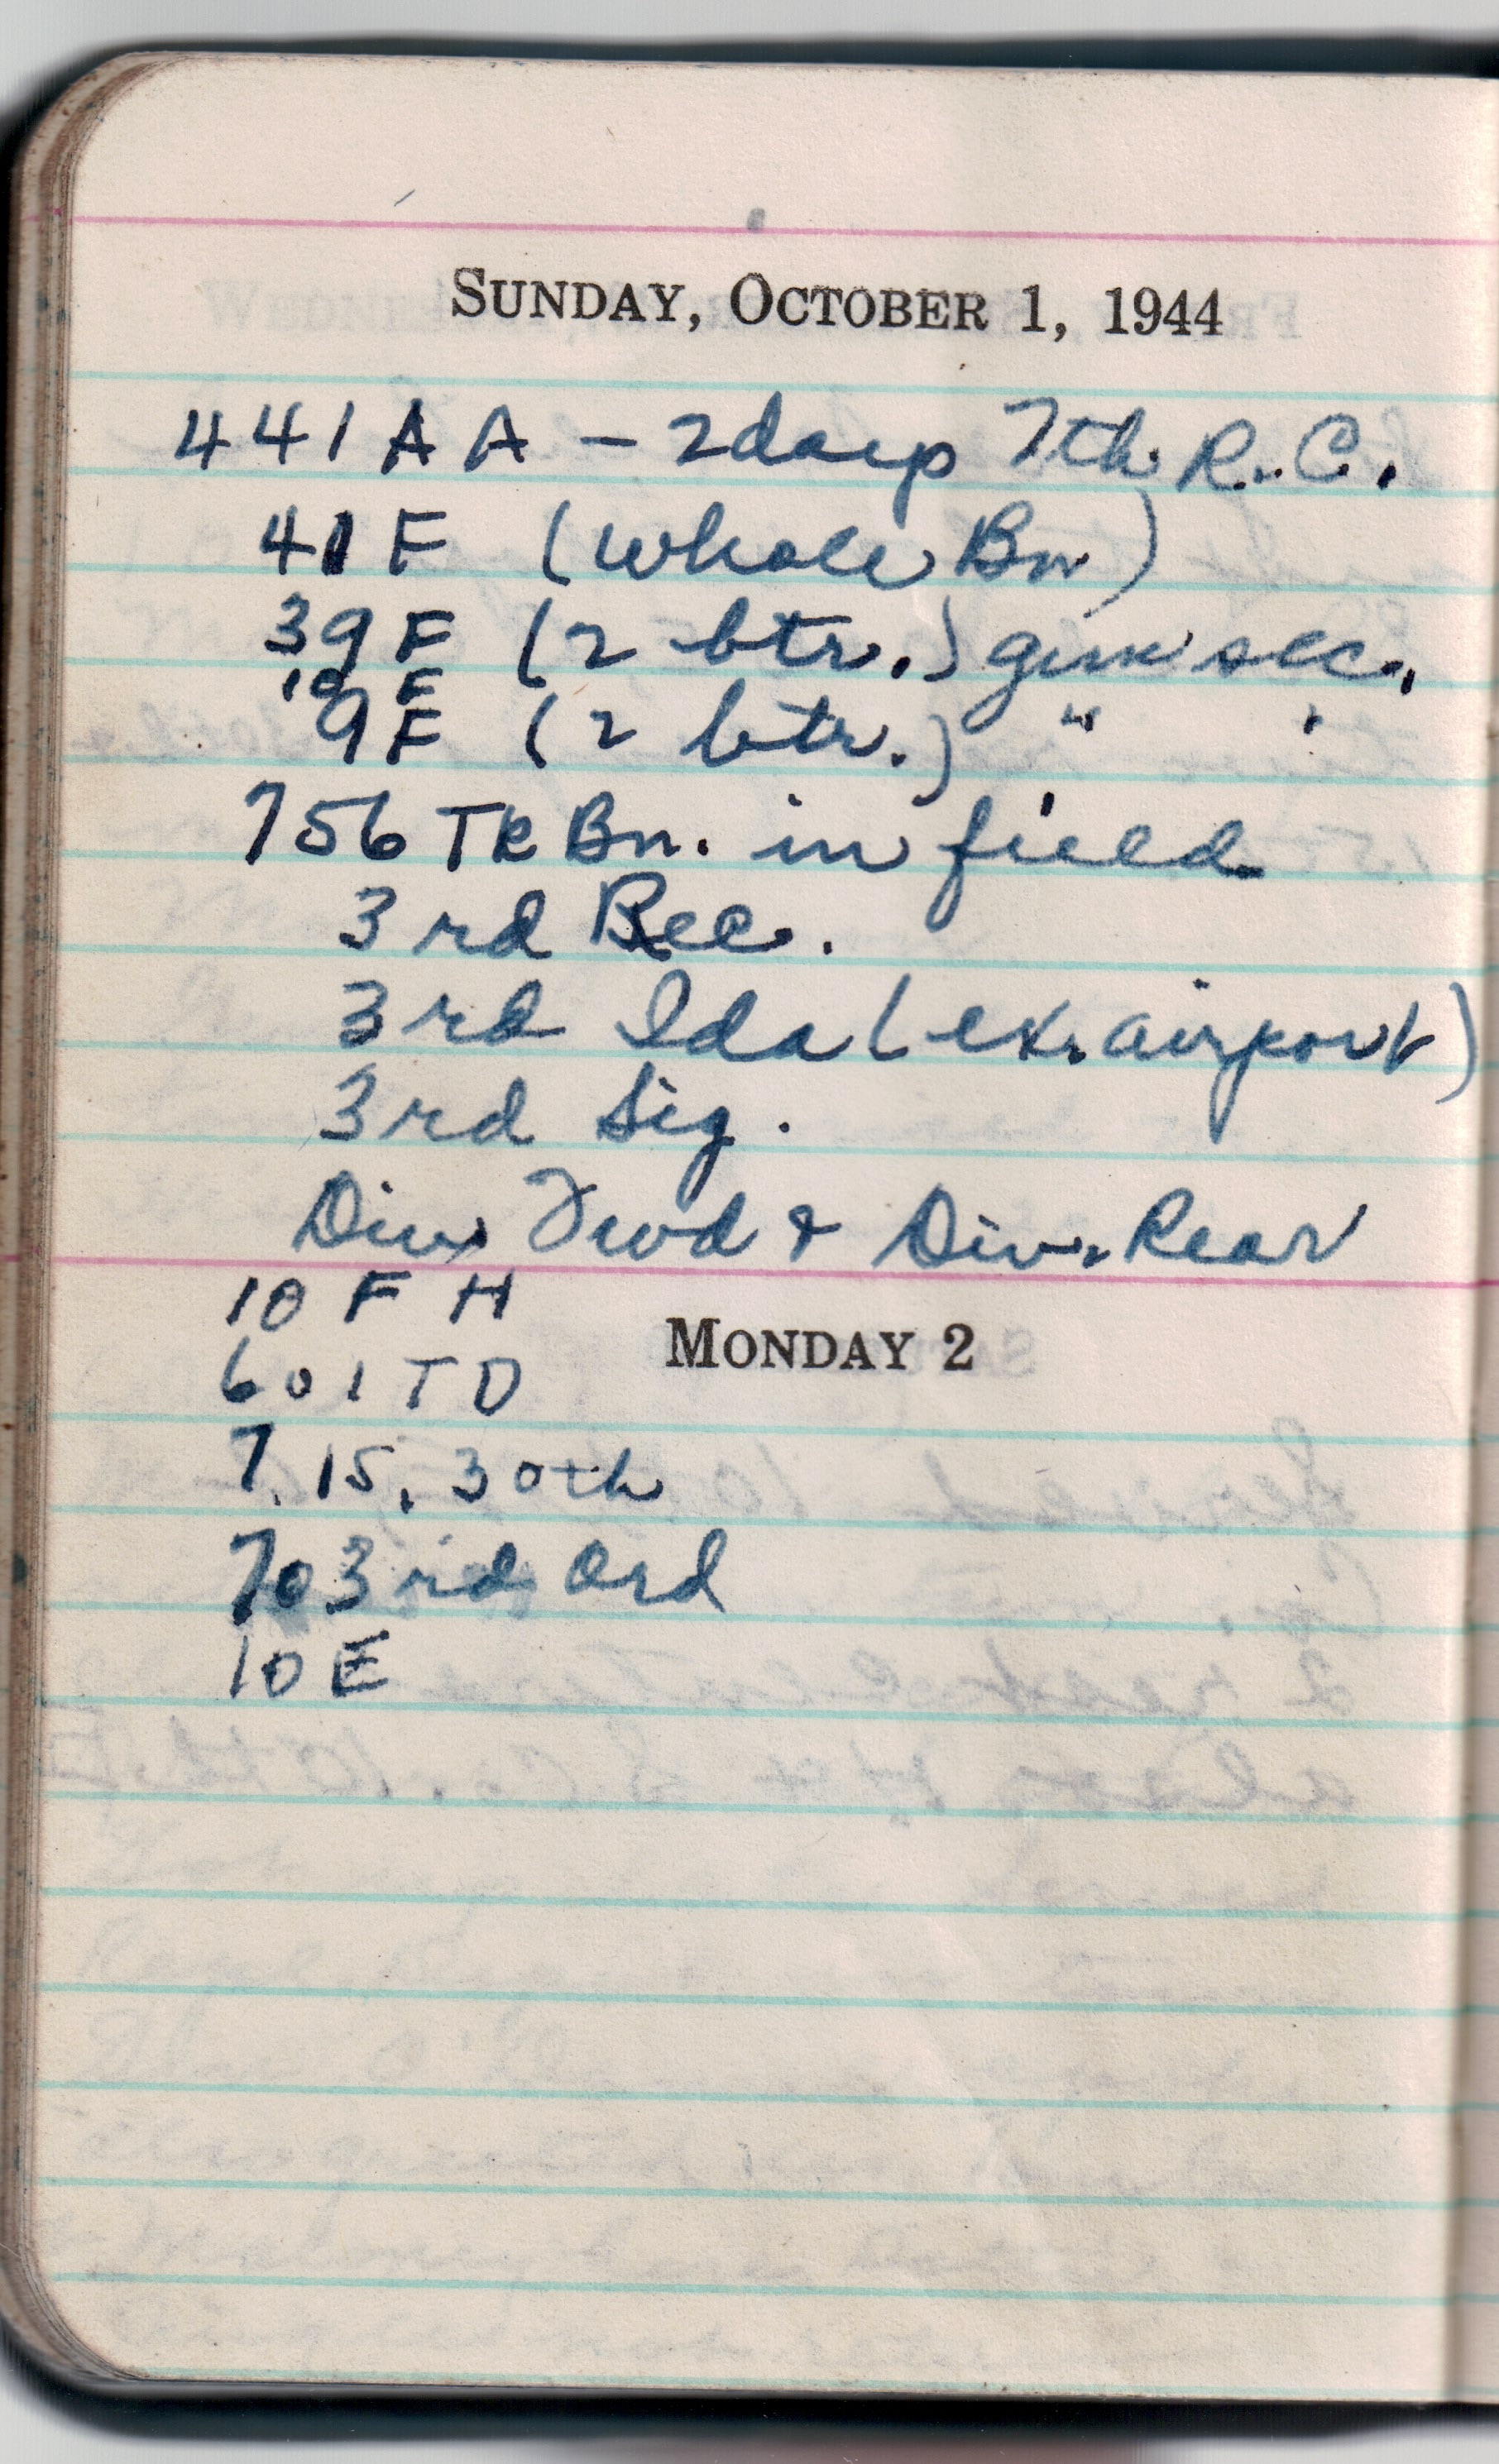 SUNDAY, OCTOBER 1, 1944
441 AA - 2 7th R.C.
41 F (whole Bn)
39 F (2 btr.) gun sec.
10 F
9 F (2 btr.) "
756 TK Bn. in field
3rd Rec.
3rd (ex. airport)
3rd Sig.
Div. Fwd & Div. Rear
10 F H
601 TD
MONDAY 2
7, 15, 30th
703rd Ord
10 E